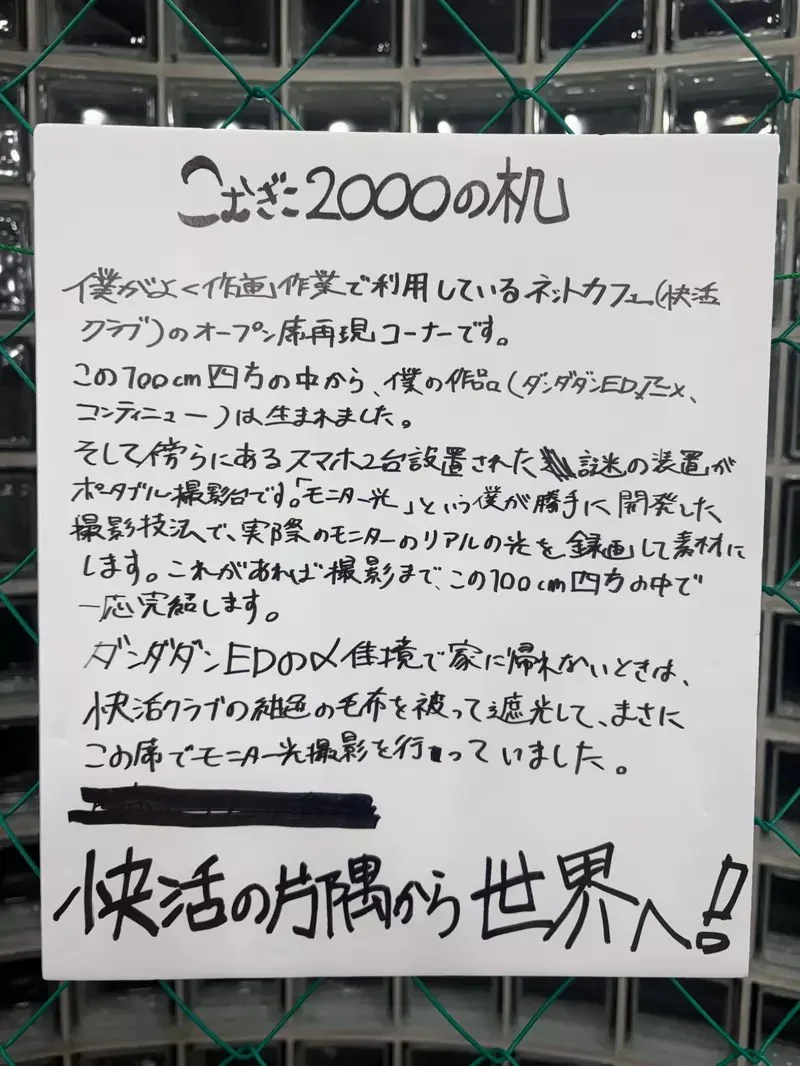 こむぎこ2000の机
僕がよく作画作業で利用しているネットカフェ(快活
クラブ)のオープン席再現コーナーです。
この100cm四方の中から、僕の作品(ダンダダンED、アニメ、
コンティニュー)は生まれました。
そして傍らにあるスマホ2台設置された謎の装置が
ポータブル撮影台です。「モニター光」という僕が勝手に開発した
撮影技法で、実際のモニターのリアルの光を録画して素材に
します。これがあれば撮影まで、この100cm四方の中で
一応完結します。
ダンダダンEDの〆佳境で家に帰れないときは、
快活クラブの紺色の毛布を被って遮光して、まさに
この席でモニター光撮影を行っていました。
快活の片隅から世界へ!!